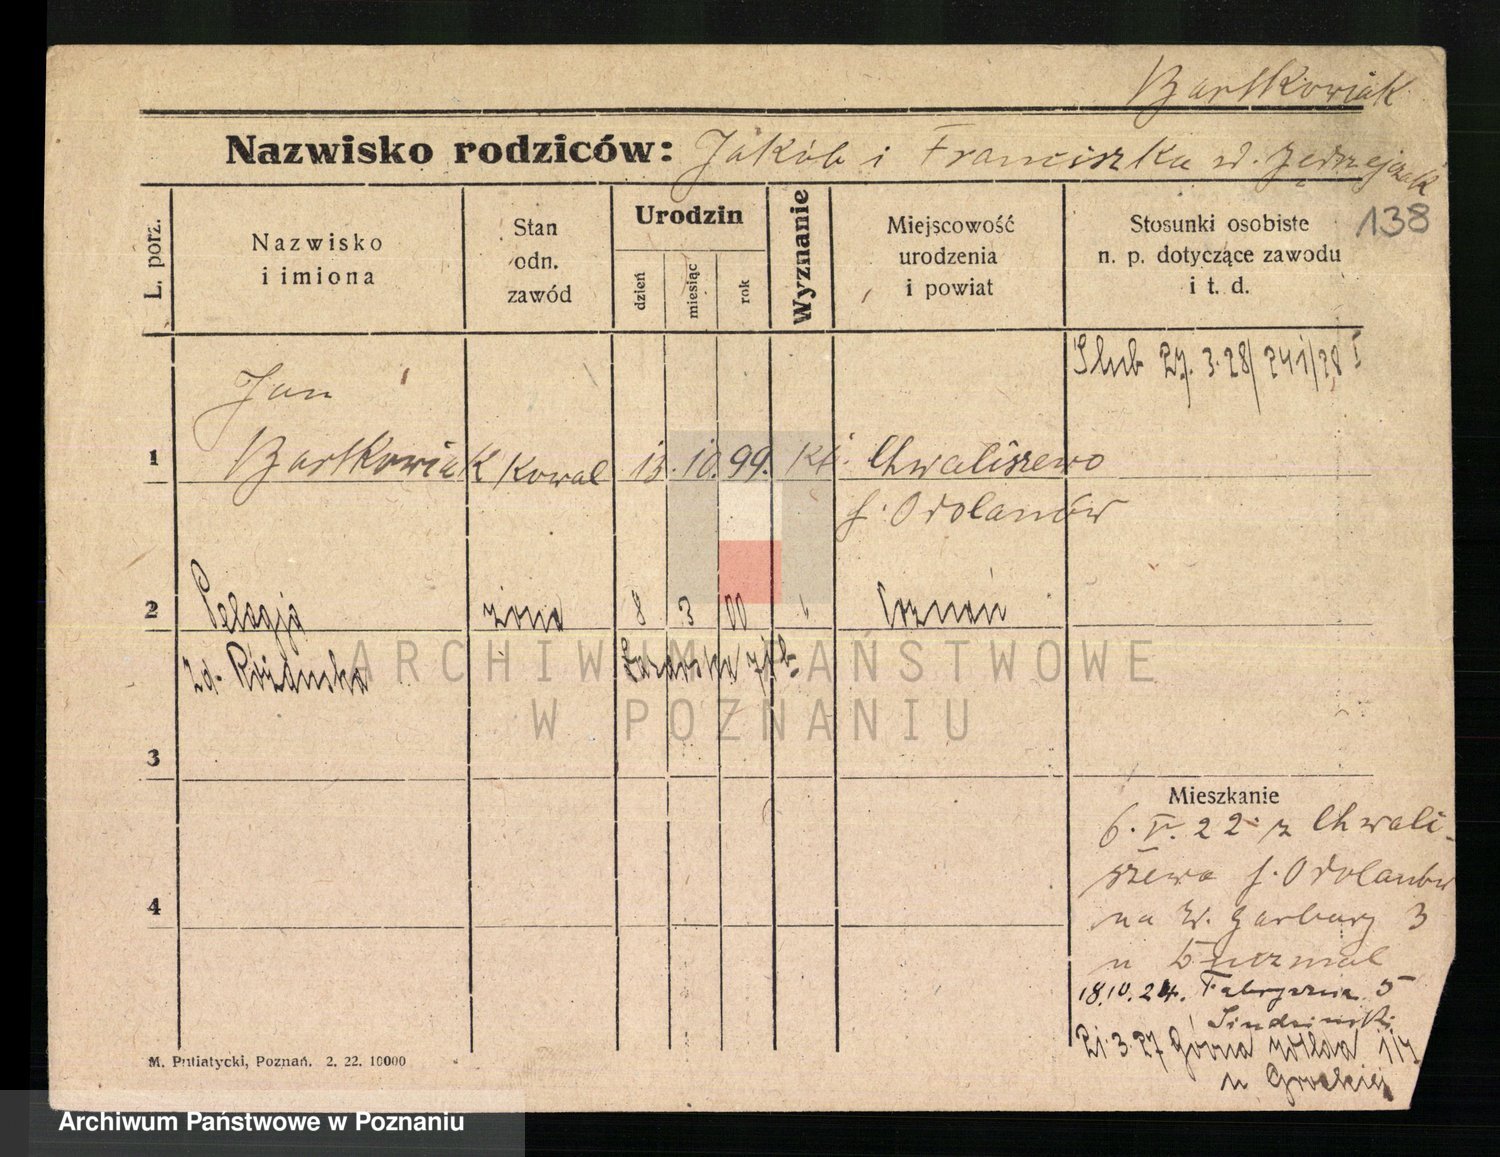 Bartkowiak
Nazwisko rodziców: Jakób i Franciszka ur. Jędrzejczak
138
L. porz.
Nazwisko i imiona
Stan odn. zawód
Urodzin
dzień
miesiąc
rok
Wyznanie
Miejscowość urodzenia i powiat
Stosunki osobiste n. p. dotyczące zawodu i t. d.
Ślub 27. 3. 28/ 241/28 I
Jan
1 Bartkowiak Kowal 10. 99. kt. Chwaliszewo
p. Odolanów
2 Pelagja żona 8 3 00 Poznań
zd. Różańska
ARCHIWUM PAŃSTWOWE
W POZNANIU
3
Mieszkanie
6. V. 22. z Chwali-
szewa p. Odolanów
na W. Garbary 3
u
4
18.10.24. Fabryczna 5
3. 27 Górna Wilda
u
M. Putiatycki, Poznań. 2. 22. 10000
Archiwum Państwowe w Poznaniu